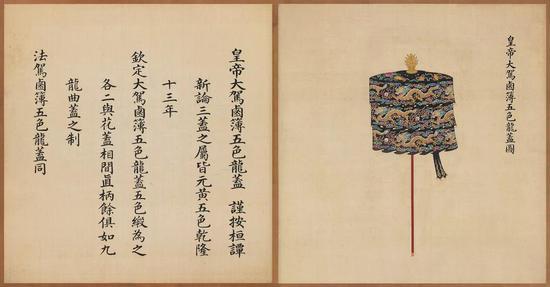 皇帝大駕鹵簿五色龍蓋圖
皇帝大駕鹵簿五色龍蓋 謹按桓譚
新論三蓋之屬皆元黃五色乾隆
十三年
欽定大駕鹵簿五色龍蓋五色緞為之
各二與花蓋相間直柄餘俱如九
龍曲蓋之制
法駕鹵簿五色龍蓋同